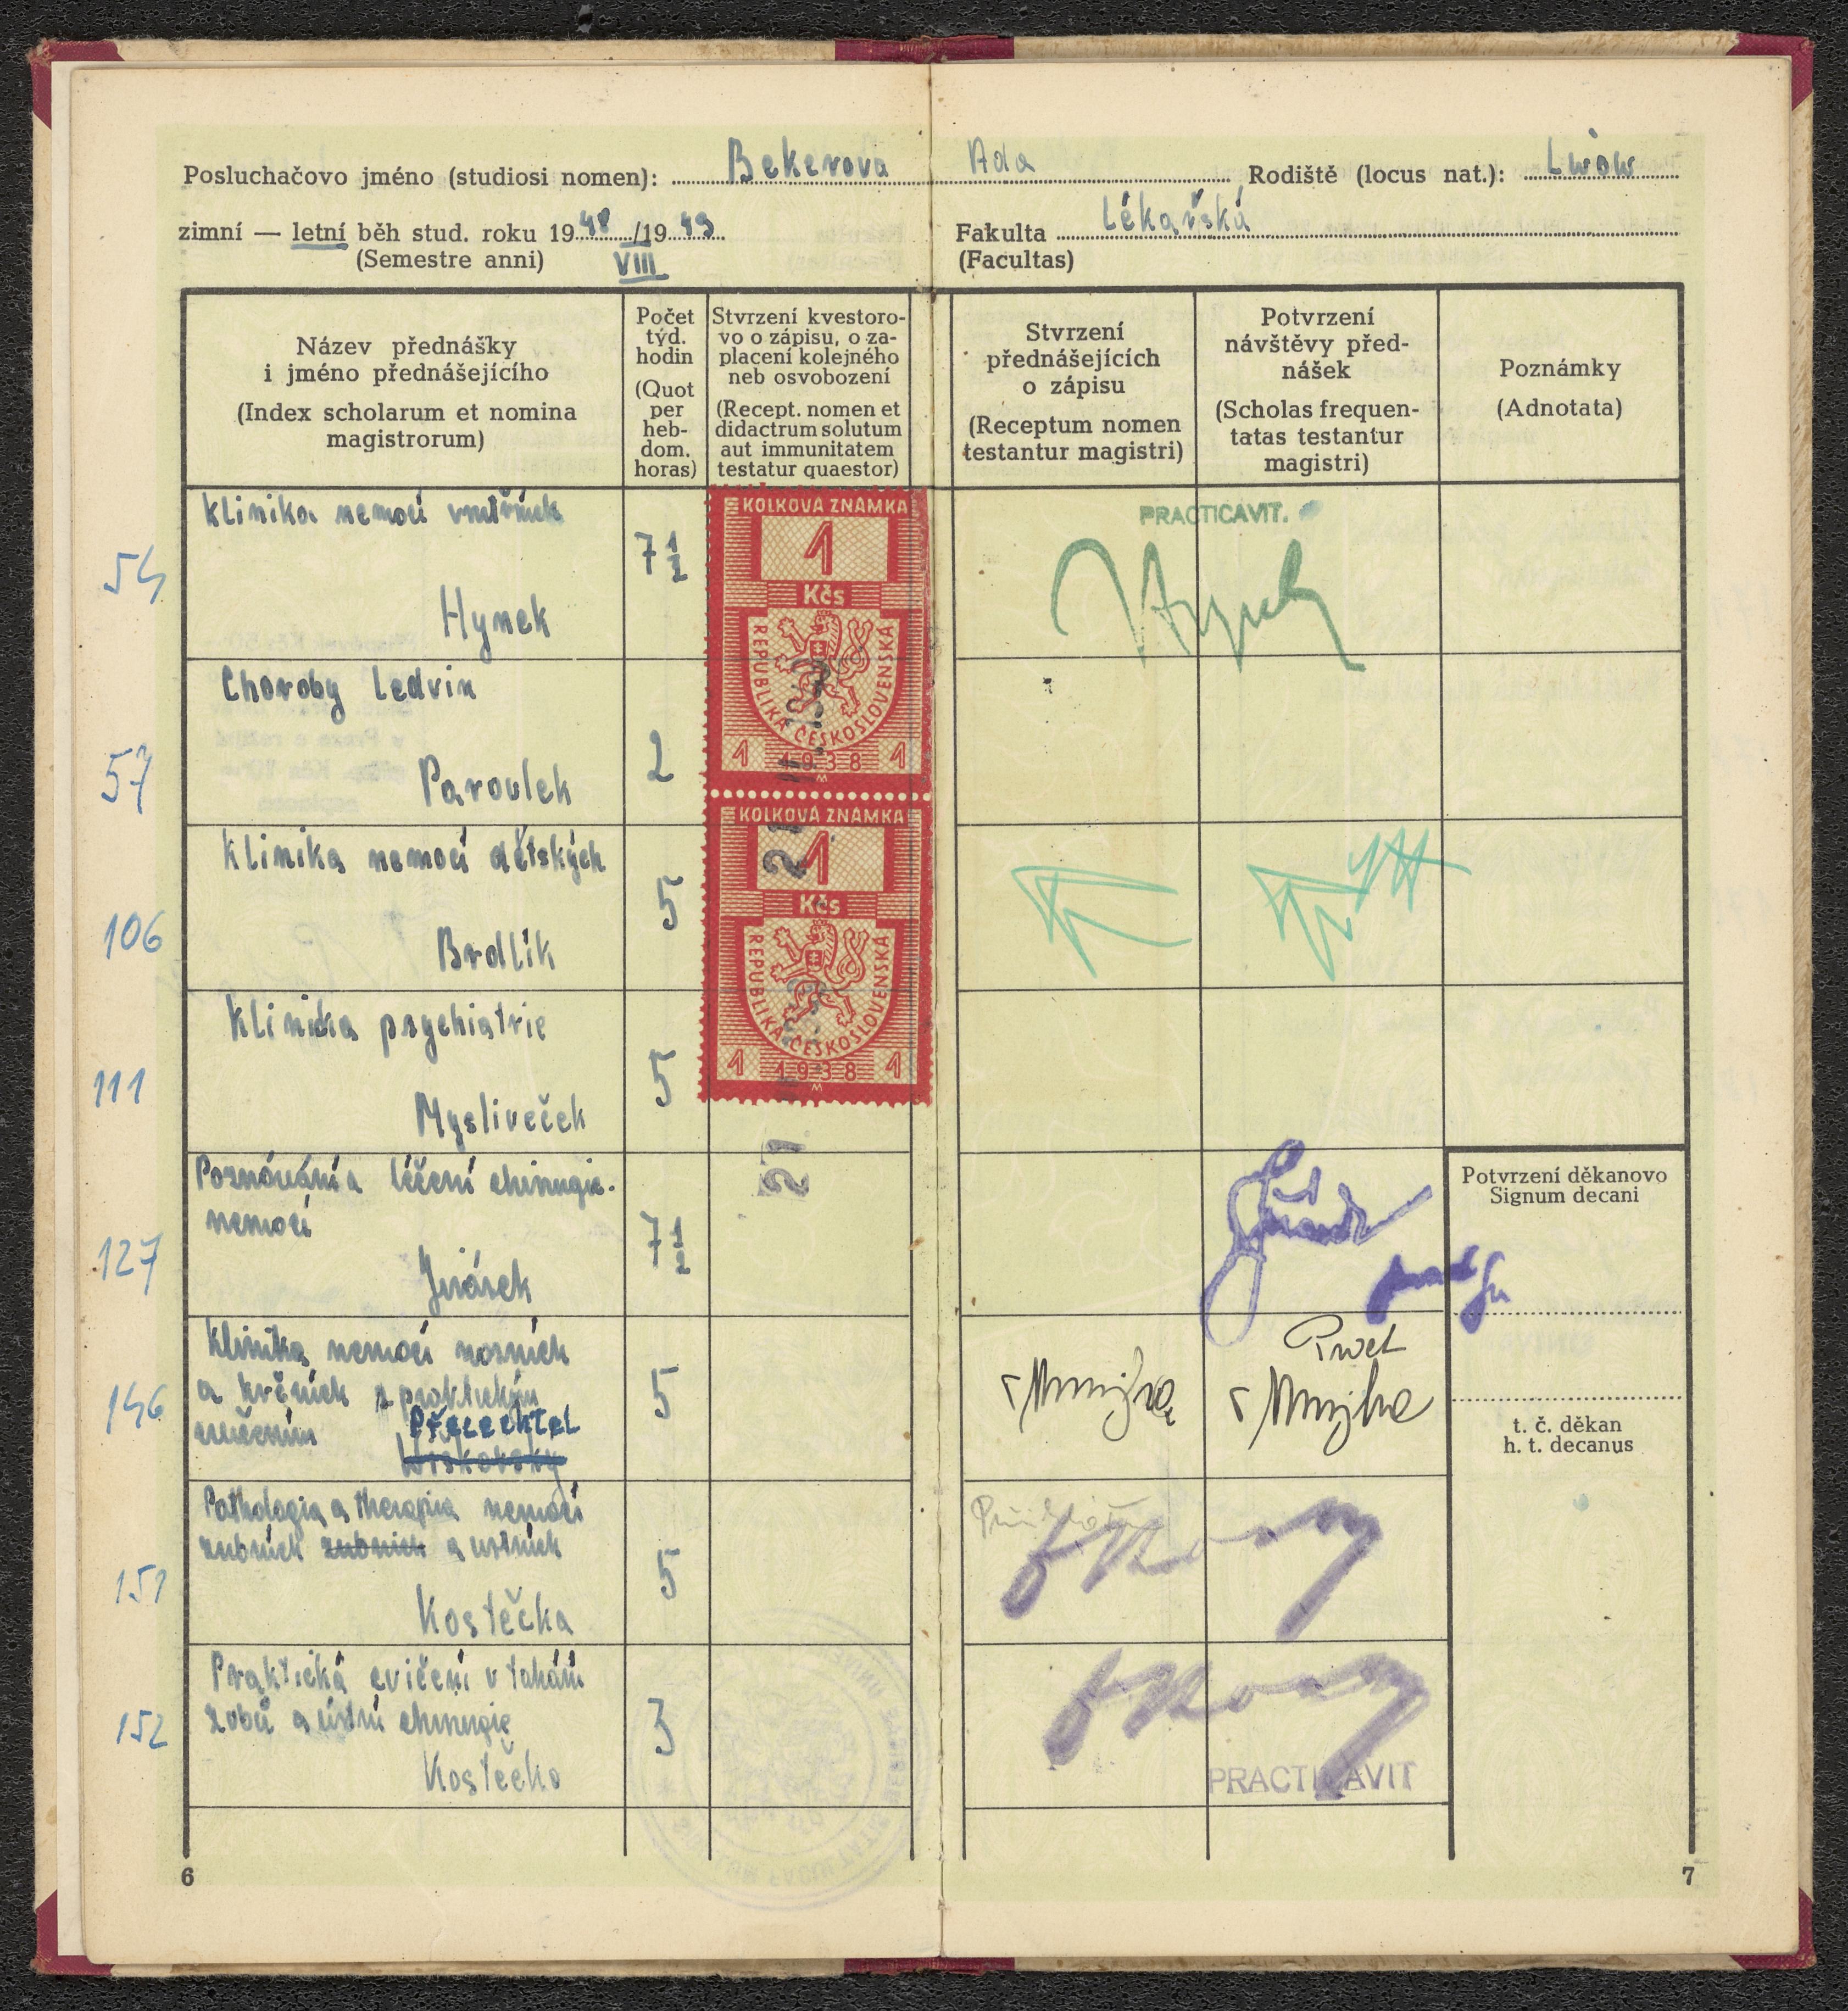 Posluchačovo jméno (studiosi nomen): Bekerova Ada Rodiště (locus nat.): Lwów
zimní — letní běh stud. roku 1948/1949 Fakulta Lékařská
(Semestre anni) VIII (Facultas)
Název přednášky
i jméno přednášejícího
(Index scholarum et nomina
magistrorum)
Počet
týd.
hodin
(Quot
per
heb-
dom.
horas)
Stvrzení kvestoro-
vo o zápisu, o za-
placení kolejného
neb osvobození
(Recept. nomen et
didactrum solutum
aut immunitatem
testatur quaestor)
Stvrzení
přednášejících
o zápisu
(Receptum nomen
testantur magistri)
Potvrzení
návštěvy před-
nášek
(Scholas frequen-
tatas testantur
magistri)
Poznámky
(Adnotata)
Klinika nemocí vnitřních
54 Hynek 7 1/2
PRACTICAVIT.
Hynek
KOLKOVÁ ZNÁMKA
1
Kčs
REPUBLIKA ČESKOSLOVENSKÁ
1 1938 1
Choroby ledvin
57 Paroulek 2
KOLKOVÁ ZNÁMKA
1
Kčs
REPUBLIKA ČESKOSLOVENSKÁ
1 1938 1
Klinika nemocí dětských
106 Brdlík 5
Klinika psychiatrie
111 Mysliveček 5
21.
Poznávání a léčení chirurgic.
nemocí
127 Jirásek 7 1/2
Potvrzení děkanovo
Signum decani
Klinika nemocí nosních
a krčních s praktickým
cvičením Přecechtěl
Wiskovský
146 5
t. č. děkan
h. t. decanus
Pathologia a therapia nemocí
zubních zubních a ústních
151 Kostečka 5
Praktická cvičení v tahání
zubů a ústní chirurgie
152 Kostečka 3
PRACTICAVIT
6 7